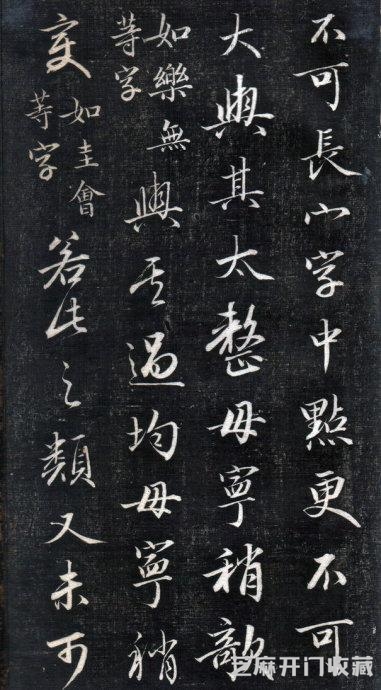 不可長心字中點更不可
大與其太整毋寧稍欹
如樂無
等字
與其過均毋寧稍
変
如圭會
等字
若此之類又未可
芝麻开门收藏